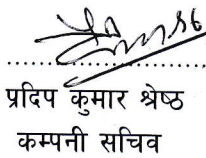 प्रदिप कुमार श्रेष्ठ
कम्पनी सचिव